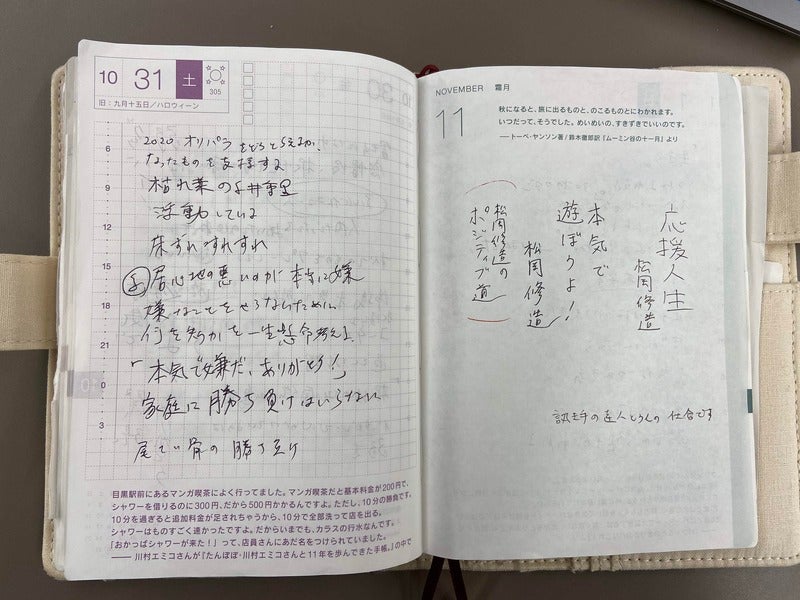 10
31
土
305
旧:九月十五日/ハロウィーン
6
9
12
15
18
21
0
3
2020 オリパラをどうとらえるか
なったものを支持する
枯れ葉の
活動している
床ずれすれすれ
居心地の悪いのが本当に嫌
嫌なことをやらないために
何を知るかを一生懸命考えよ
「本気で嫌だ、ありがとう!」
家庭に勝ち負けはいらない
尾てい骨の勝ち
目黒駅前にあるマンガ喫茶によく行ってました。マンガ喫茶だと基本料金が200円で、
シャワーを借りるのに300円、だから500円かかるんですよ。ただし、10分の勝負です。
10分を過ぎると追加料金が足されちゃうから、10分で全部洗って店を出る。
シャワーはものすごく速かったですよ。だからいまでも、カラスの行水なんです。
「おかっぱシャワーが来た!」って、店員さんにあだ名をつけられていました。
── 川村エミコさんが『たんぽぽ・川村エミコさんと11年を歩んできた手帳。』の中で
NOVEMBER 霜月
11
秋になると、旅に出るものと、のこるものとにわかれます。
いつだって、そうでした。めいめいの、すきずきでいいのです。
── トーベ・ヤンソン著/鈴木徹郎訳『ムーミン谷の十一月』より
応援人生
松岡修造
本気で
遊ぼうよ!
松岡修造
松岡修造の
ポジティブ道
達人 の仕合です